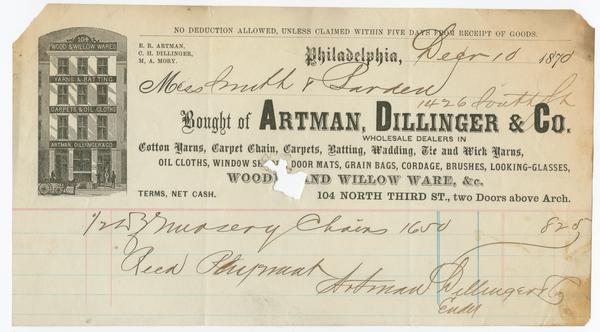 NO DEDUCTION ALLOWED, UNLESS CLAIMED WITHIN FIVE DAYS FROM RECEIPT OF GOODS.
E. R. ARTMAN,
C. H. DILLINGER,
M. A. MORY.
Philadelphia, Decr 10 1870
Mess Smith & Darden
1426 South St
Bought of ARTMAN, DILLINGER & Co.
WHOLESALE DEALERS IN
Cotton Yarns, Carpet Chain, Carpets, Batting, Wadding, Tie and Wick Yarns,
OIL CLOTHS, WINDOW DOOR MATS, GRAIN BAGS, CORDAGE, BRUSHES, LOOKING-GLASSES,
AND WILLOW WARE, &c.
TERMS, NET CASH.
104 NORTH THIRD ST., two Doors above Arch.
104
WOOD & WILLOW WARE
YARNS & BATTING
CARPETS & OIL CLOTHS
ARTMAN, DILLINGER & CO.
1/2 Dz Nursery Chairs 1650 825
Recd Payment
Artman Dillinger & Co